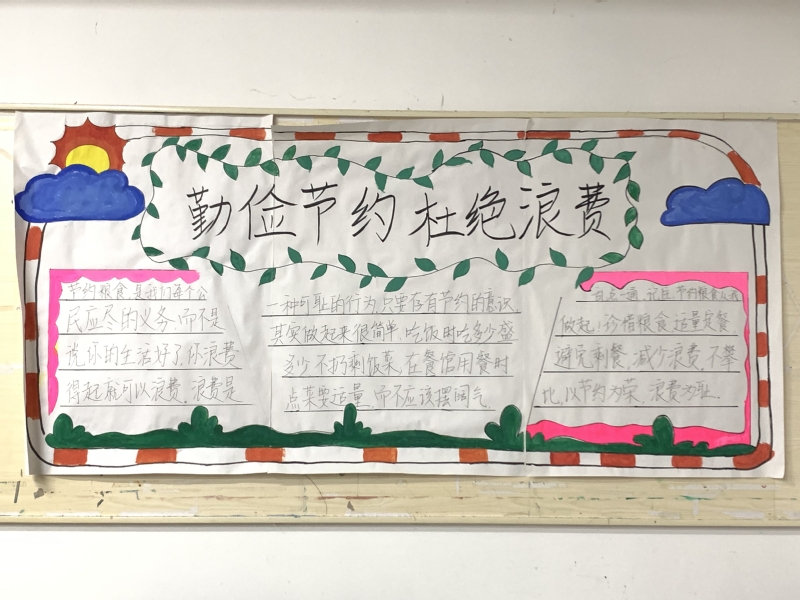 勤俭节约 杜绝浪费
节约粮食,是我们每个公
民应尽的义务,而不是
说你的生活好了你浪费
得起就可以浪费,浪费是
一种可耻的行为,只要存有节约的意识,
其实做起来很简单,吃饭时吃多少盛
多少不扔剩饭菜,在餐馆用餐时
点菜要适量,而不应该摆阔气
一点一滴,记住,节约粮食从我
做起!珍惜粮食,适量定餐,
避免剩餐,减少浪费,不攀
比,以节约为荣,浪费为耻.